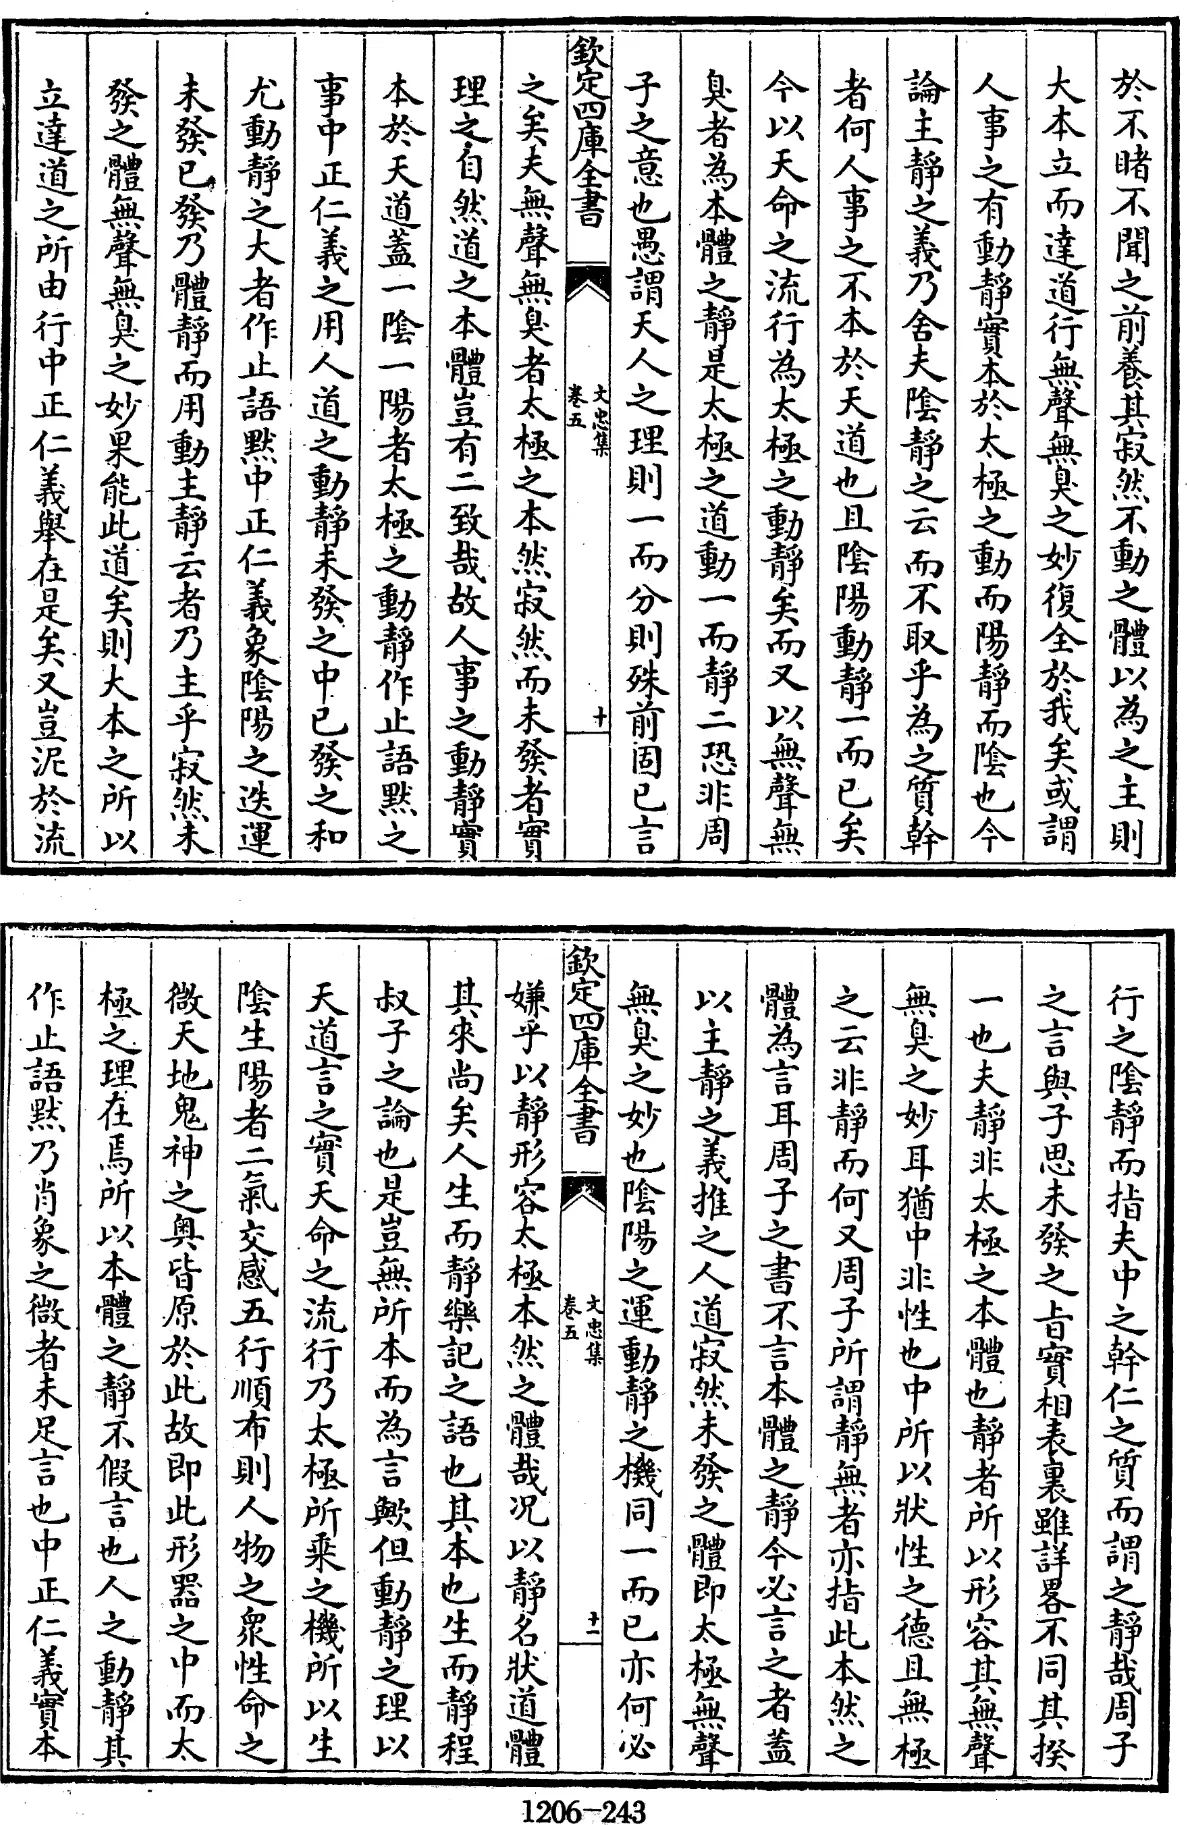 於不睹不聞之前養其寂然不動之體以為之主則
大本立而達道行無聲無臭之妙復全於我矣或謂
人事之有動靜實本於太極之動而陽靜而陰也今
論主靜之義乃舍夫陰靜之云而不取乎為之質幹
者何人事之不本於天道也且陰陽動靜一而已矣
今以天命之流行為太極之動靜矣而又以無聲無
臭者為本體之靜是太極之道動一而靜二恐非周
子之意也愚謂天人之理則一而分則殊前固已言
欽定四庫全書
文忠集
卷五
十
之矣夫無聲無臭者太極之本然寂然而未發者實
理之自然道之本體豈有二致哉故人事之動靜實
本於天道蓋一陰一陽者太極之動靜作止語默之
事中正仁義之用人道之動靜未發之中已發之和
尤動靜之大者作止語默中正仁義象陰陽之迭運
未發已發乃體靜而用動主靜云者乃主乎寂然未
發之體無聲無臭之妙果能此道矣則大本之所以
立達道之所由行中正仁義舉在是矣又豈泥於流
行之陰靜而指夫中之幹仁之質而謂之靜哉周子
之言與子思未發之旨實相表裏雖詳畧不同其揆
一也夫靜非太極之本體也靜者所以形容其無聲
無臭之妙耳猶中非性也中所以狀性之德且無極
之云非靜而何又周子所謂靜無者亦指此本然之
體為言耳周子之書不言本體之靜今必言之者蓋
以主靜之義推之人道寂然未發之體即太極無聲
無臭之妙也陰陽之運動靜之機同一而已亦何必
欽定四庫全書
文忠集
卷五
十一
嫌乎以靜形容太極本然之體哉况以靜名狀道體
其來尚矣人生而靜樂記之語也其本也生而靜程
叔子之論也是豈無所本而為言歟但動靜之理以
天道言之實天命之流行乃太極所乘之機所以生
陰生陽者二氣交感五行順布則人物之衆性命之
微天地鬼神之奥皆原於此故即此形器之中而太
極之理在焉所以本體之靜不假言也人之動靜其
作止語默乃肖象之微者未足言也中正仁義實本
1206-243